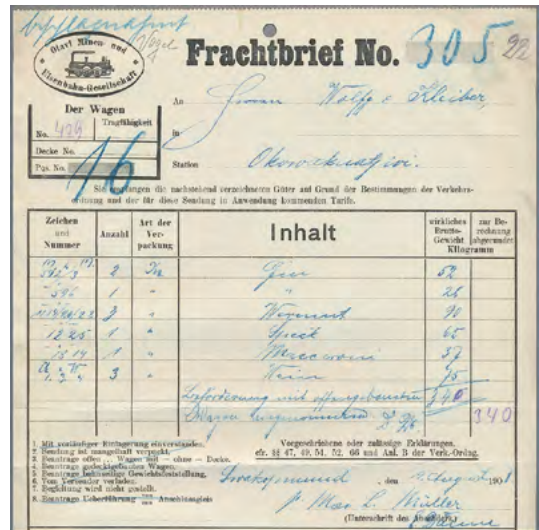 Vogel
Otavi Minen- und
Eisenbahn-Gesellschaft
Frachtbrief No. 305 22
Der Wagen
No. 429 Tragfähigkeit
Decke No.
Pos. No.
16
An Wolff & Kleiber,
in
Station Okowakuatjivi.
Sie empfangen die nachstehend verzeichneten Güter auf Grund der Bestimmungen der Verkehrs-
ordnung und der für diese Sendung in Anwendung kommenden Tarife.
Zeichen und Nummer Anzahl Art der Verpackung Inhalt wirkliches Brutto-Gewicht zur Berechnung abgerundet Kilogramm
2 Eier 52
596 1 " " 26
3 " Wermut 90
1225 1 " Speck 65
1 " Maccaroni
3 " Wein 75
Beförderung mit offengebautem 340
Wagen 340
1. Mit vorläufiger Einlagerung einverstanden.
2. Sendung ist mangelhaft verpackt.
3. Beantrage offen ... Wagen mit — ohne — Decke.
4. Beantrage gedeckten Wagen.
5. Beantrage bahnseitige Gewichtsfeststellung.
6. Vom Versender verladen.
7. Begleitung wird nicht gestellt.
8. Beantrage Ueberführung Anschlussgleis
Vorgeschriebene oder zulässige Erklärungen.
cfr. §§ 47, 49, 51, 52, 66 und Anl. B der Verk.-Ordng.
Swakopmund, den August 190
p. Max L. Müller
(Unterschrift des Absenders.)